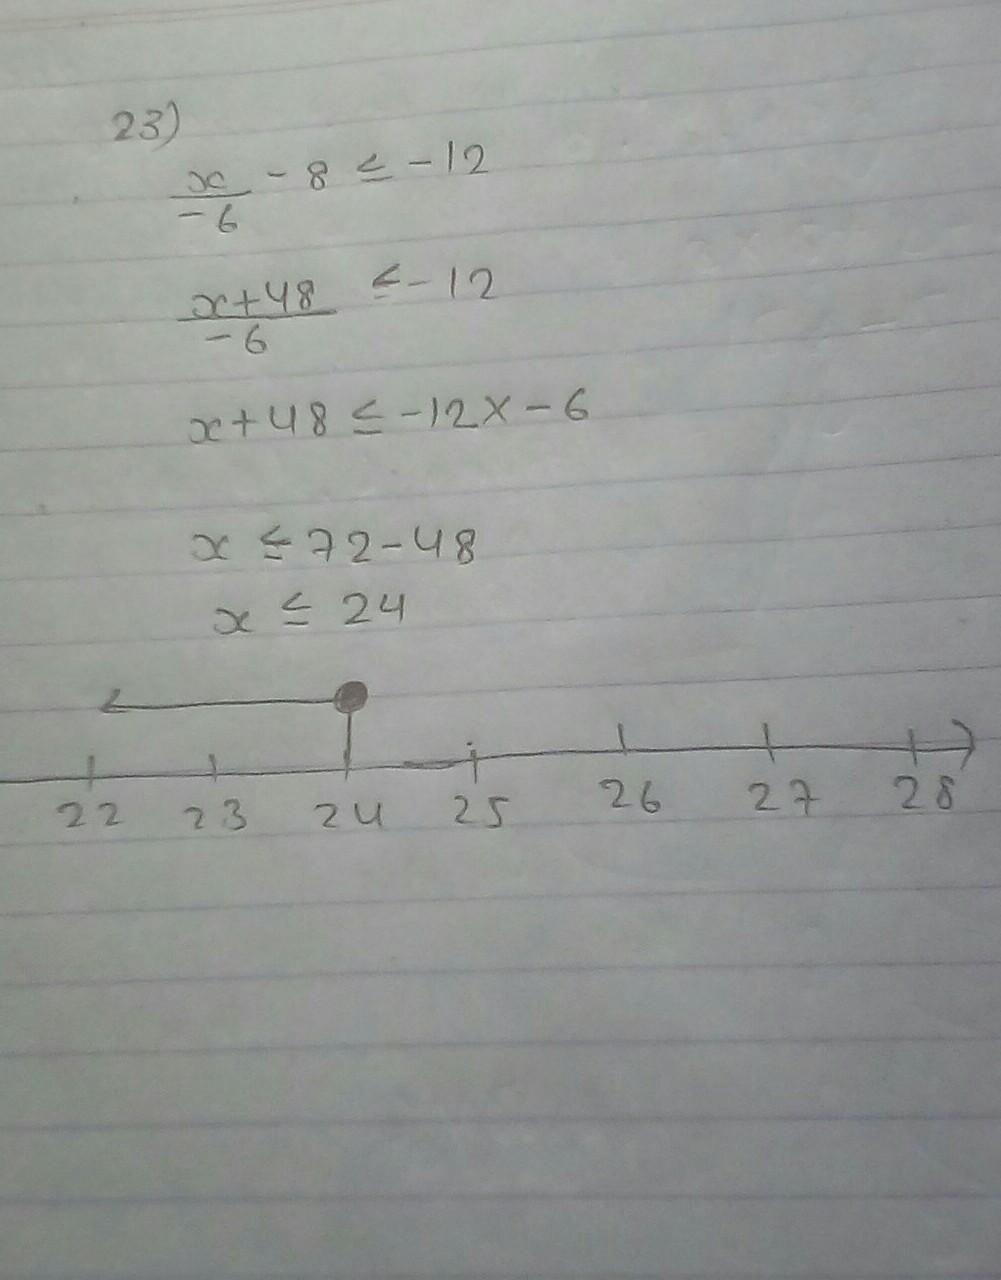 23)
x/-6 - 8 ≤ -12
x+48/-6 ≤ -12
x+48 ≤ -12 x -6
x ≤ 72-48
x ≤ 24
22 23 24 25 26 27 28